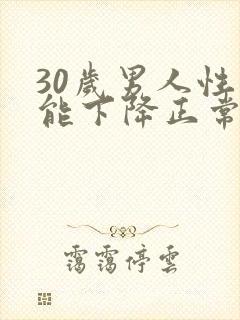 30歲男人性
能下降正常
靄靄停雲